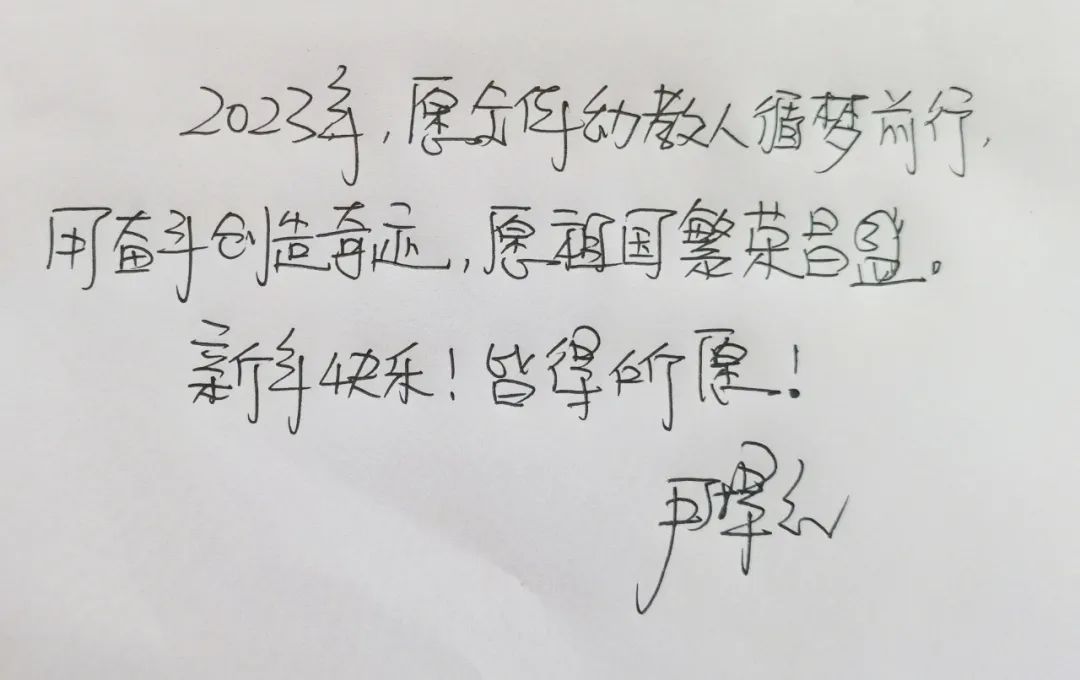 2023年,愿全体幼教人循梦前行,
用奋斗创造奇迹,愿祖国繁荣昌盛。
新年快乐!皆得所愿!